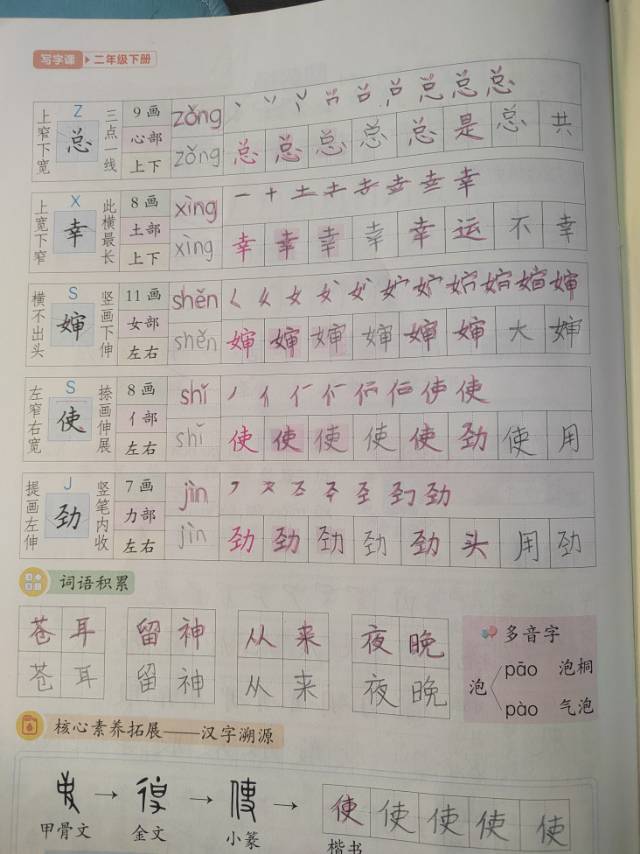 写字课 二年级下册
上窄下宽 Z 总 三点一线 9画 心部 上下 zǒng
zǒng 总 总 总 总 总 是 总 共
上宽下窄 X 幸 此横最长 8画 土部 上下 xìng 一 十 土 幸
xìng 幸 幸 幸 幸 幸 运 不 幸
横不出头 S 婶 竖画下伸 11画 女部 左右 shěn 女 婶
shěn 婶 婶 婶 婶 婶 婶 大 婶
左窄右宽 S 使 捺画伸展 8画 亻部 左右 shǐ 丿 亻 使
shǐ 使 使 使 使 使 劲 使 用
提画左伸 J 劲 竖笔内收 7画 力部 左右 jìn 劲
jìn 劲 劲 劲 劲 劲 头 用 劲
词语积累
苍耳 留神 从来 夜晚
苍耳 留神 从来 夜晚
多音字
泡 pāo 泡桐
pào 气泡
核心素养拓展——汉字溯源
→ → → 使 使 使 使 使
甲骨文 金文 小篆 楷书